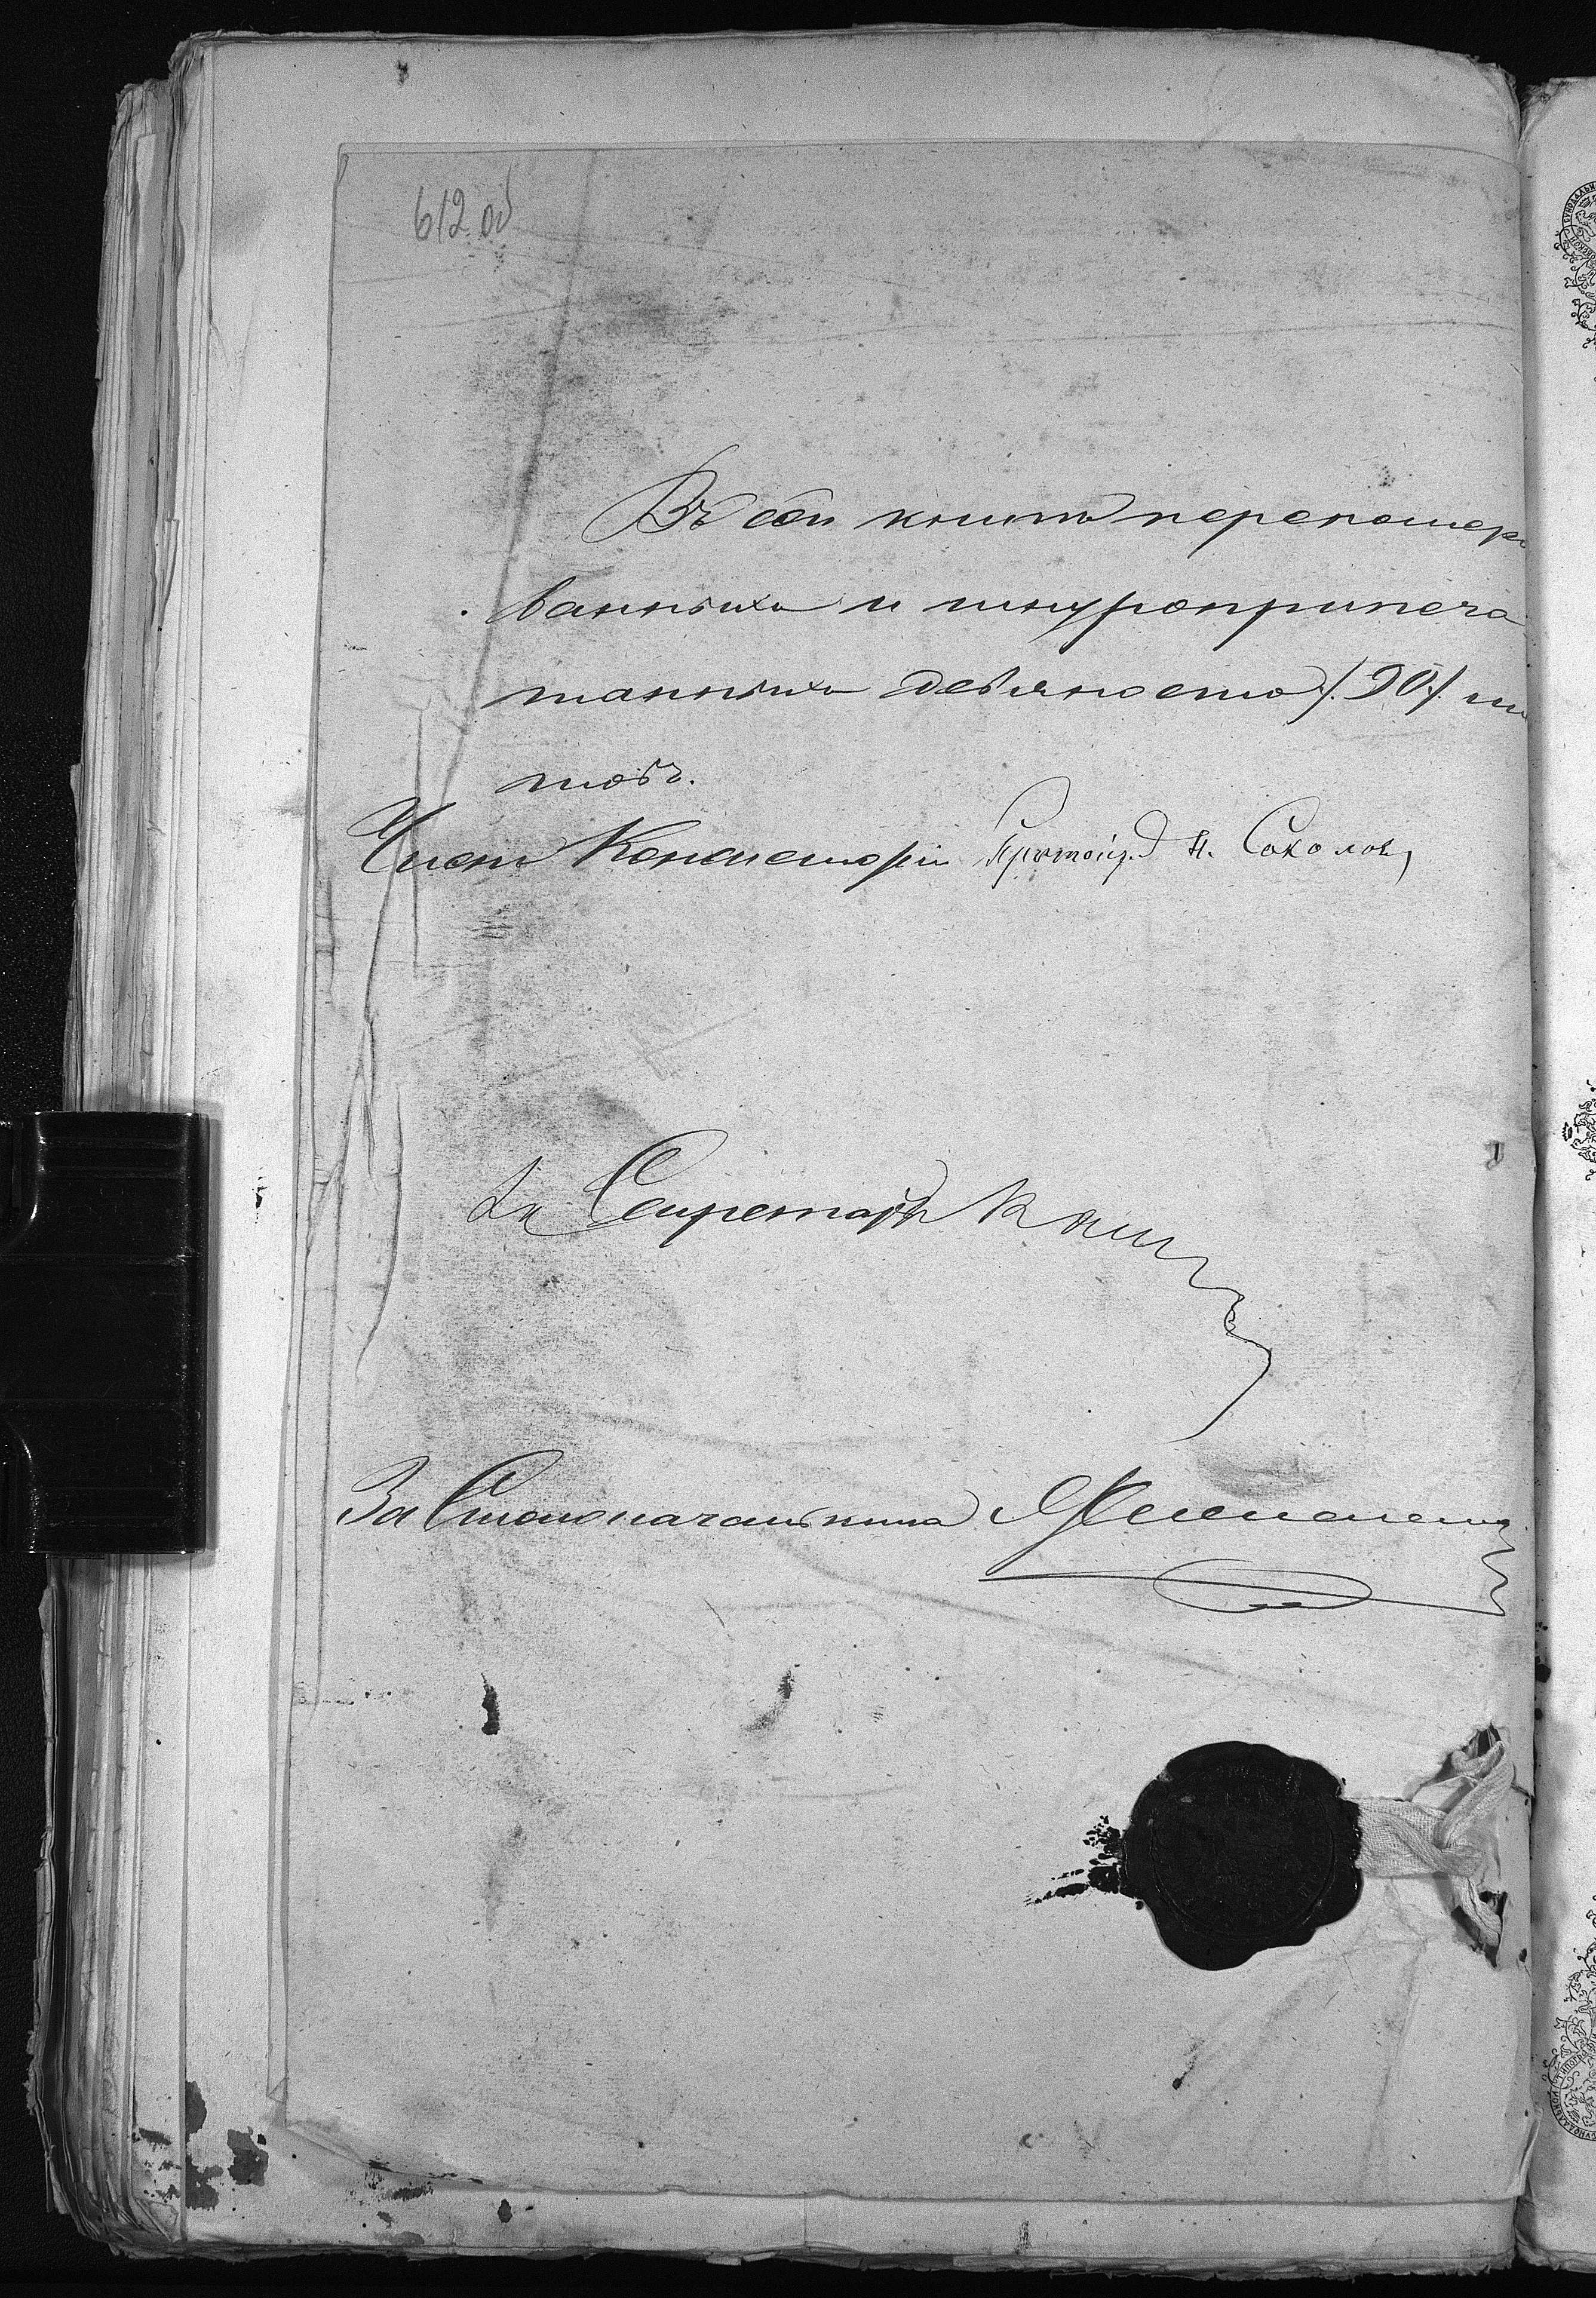 612 об
Въ сей книгѣ перенумеро
ванныхъ и шнуроприпеча
танныхъ девяносто /90/ лис
товъ.
Членъ Консисторіи Протоіер. Н. Соколовъ
Секретарь
За Столоначальника